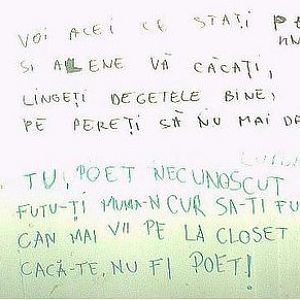 VOI ACEI CE STAȚI
SI ALENE VĂ CĂCAȚI,
LINGEȚI DEGETELE BINE,
PE PEREȚI SĂ NU MAI
TU, POET NECUNOSCUT
FUTU-ȚI MUMA-N CUR SA-TI FU
CAN MAI VII PE LA CLOSET
CACĂ-TE, NU FI POET!